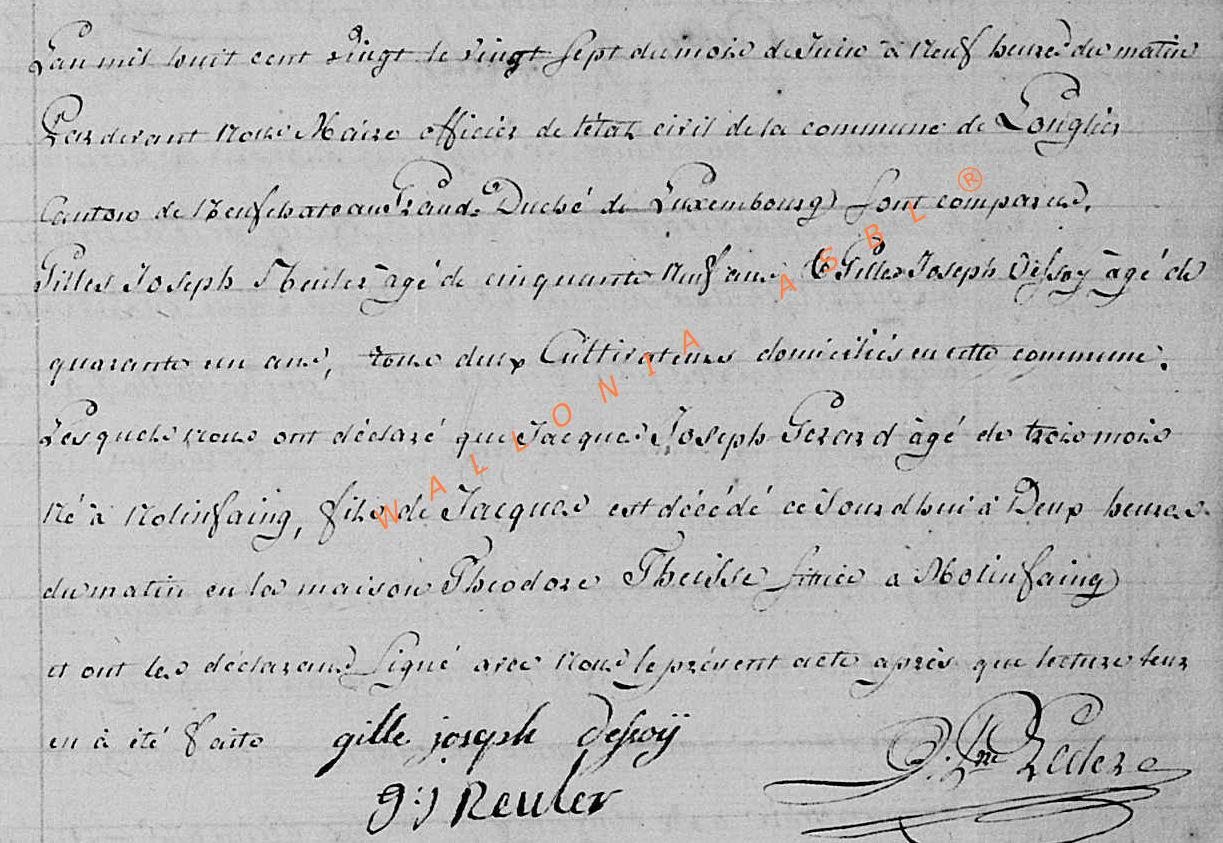 L'an mil huit cent vingt le vingt sept du mois de Juin à Neuf heures du matin
Pardevant Nous Maire officier de l'état civil de la commune de Longlier
Canton de Neufchateau Grand Duché de Luxembourg sont comparus,
Gilles Joseph Reuler âgé de cinquante Neuf ans & Gilles Joseph Dessoy âgé de
quarante un ans, tous deux Cultivateurs domiciliés en cette commune.
Lesquels Nous ont déclaré que Jacques Joseph Gerard âgé de trois mois
Né à Molinfaing, fils de Jacques est décédé ce Jourdhui à Deux heures
du matin en la maison Théodore Theisse sittuée à Molinfaing
et ont les déclarans Signé avec Nous le présent acte après que lecture leur
en à été faite gille joseph dessoÿ
g:j Reuler Leclere
WALLONIA ASBL ®